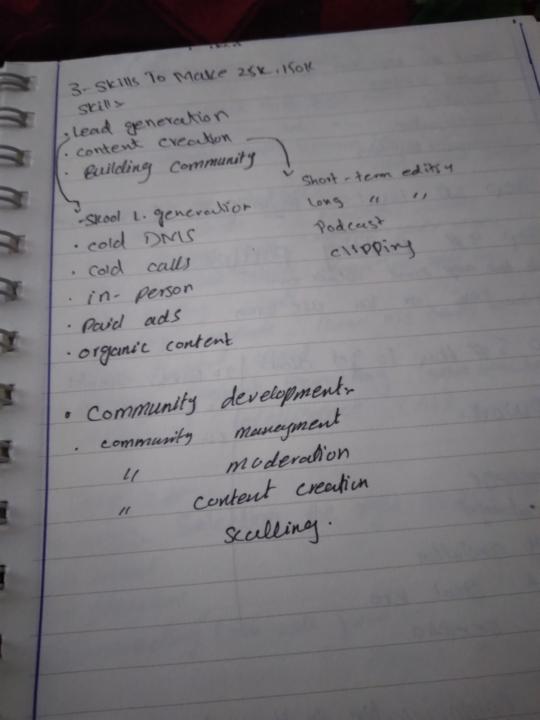 3- Skills To Make 25K, 150K
Skills
• Lead generation
• content creation
• Building Community
Short-term editsy
Long " "
Podcast
clipping
- Skool L. generation
• cold DMS
• cold calls
• in-person
• Paid ads
• organic content
• Community development
• community managment
" moderation
" content creation
Sculling.